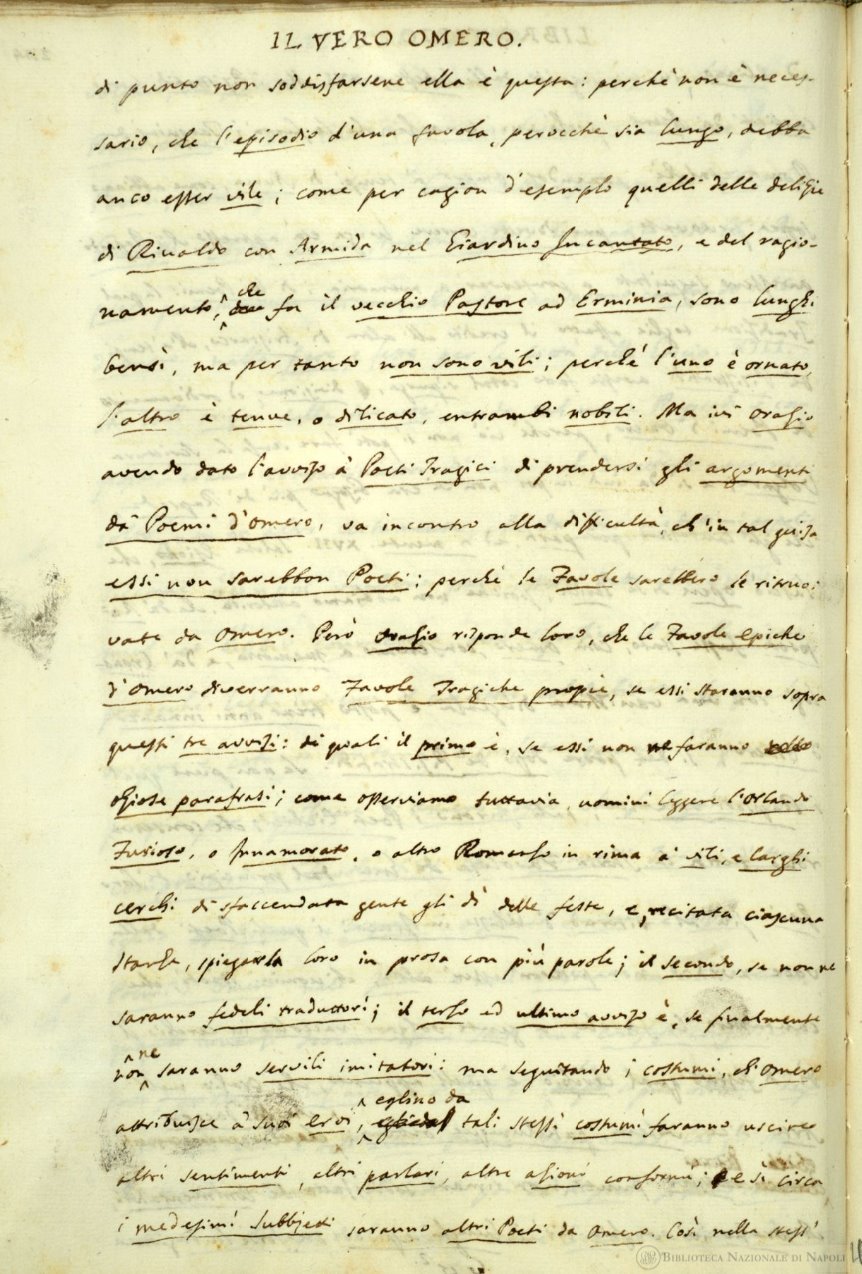 IL VERO OMERO.
di punto non soddisfarsene ella è questa: perchè non è neces-
sario, che l'episodio d'una favola, perocchè sia lungo, debba
anco esser vile; come per cagion d'esemplo quelli delle delizie
di Rinaldo con Armida nel Giardino Incantato, e del ragio-
namento, che fa il vecchio Pastore ad Erminia, sono lunghi
bensì, ma per tanto non sono vili; perchè l'uno è ornato,
l'altro è tenue, o dilicato, entrambi nobili. Ma ivi Orazio
avendo dato l'avviso à Poeti Tragici di prendersi gli argomenti
dà Poemi d'Omero, va incontro alla difficultà, ch'in tal guisa
essi non sarebbon Poeti; perchè le Favole sarebbero le ritruo-
vate da Omero. Però Orazio risponde loro, che le Favole epiche
d'Omero diverranno Favole Tragiche propie, se essi staranno sopra
questi tre avvisi: dè quali il primo è, se essi non ne faranno
oziose parafrasi; come osserviamo tuttavia uomini leggere l'Orlando
Furioso, o Innamorato, o altro Romanzo in rima à vili, e larghi
cerchi di sfaccendata gente gli dì delle feste, e, recitata ciascuna
stanza, spiegarla loro in prosa con più parole; il secondo, se non ne
saranno fedeli traduttori; il terzo ed ultimo avviso è, se finalmente
non ne saranno servili imitatori: ma seguitando i costumi, ch'Omero
attribuisce à suoi eroi, eglino da tali stessi costumi faranno uscire
altri sentimenti, altri parlari, altre azioni conformi; e sì circa
i medesimi subbjetti saranno altri Poeti da Omero. Così nella stess'
BIBLIOTECA NAZIONALE DI NAPOLI